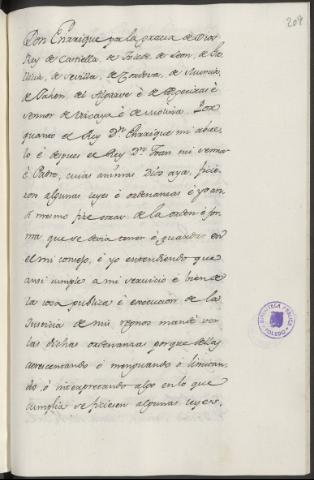 209
Don Enrrique por la gracia de Dios
Rey de Castilla, de Toledo, de Leon, de Ga
llicia, de Sevilla, de Cordova, de Murcia,
de Jahen, del Algarve è de Algecira è
señor de Vizcaya è de Molina. Por
quanto el Rey Dn. Enrrique mi abue
lo è despues el Rey Dn. Juan mi señor
è Padre, cuias animas Dios aya, ficie
ron algunas leyes è ordenanzas è yo an
si mesmo fice otras, de la orden è for
ma, que se devia tener è guardar en
el mi consejo, è yo entendiendo que
ansi cumple a mi servicio è bien de
la cosa publica è execucion de la
Justicia de mis reynos mandè ver
las dichas ordenanzas porque dellas
acrescentando ò menguando ò limitan
do, ò interpretando algo en lo que
cumplia se ficiesen algunas leyes,
BIBLIOTECA PUBLICA
TOLEDO